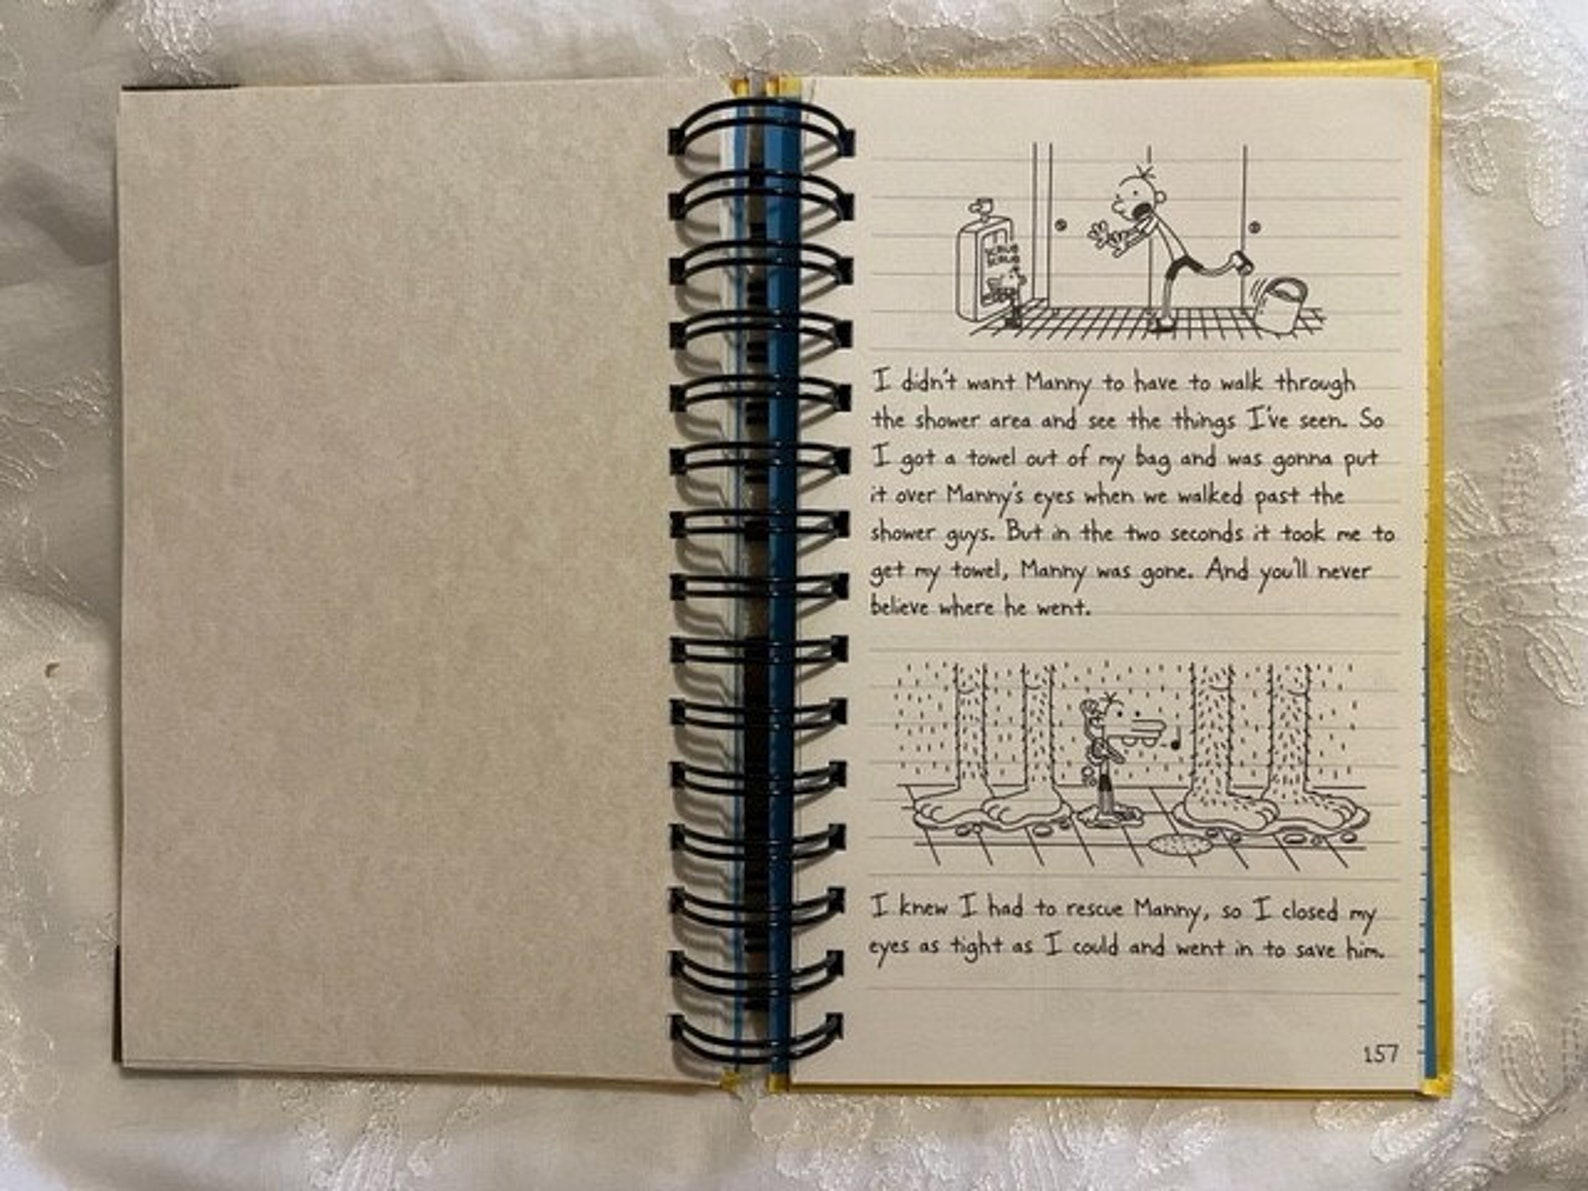 SCRUB
SCRUB
I didn't want Manny to have to walk through
the shower area and see the things I've seen. So
I got a towel out of my bag and was gonna put
it over Manny's eyes when we walked past the
shower guys. But in the two seconds it took me to
get my towel, Manny was gone. And you'll never
believe where he went.
I knew I had to rescue Manny, so I closed my
eyes as tight as I could and went in to save him.
157